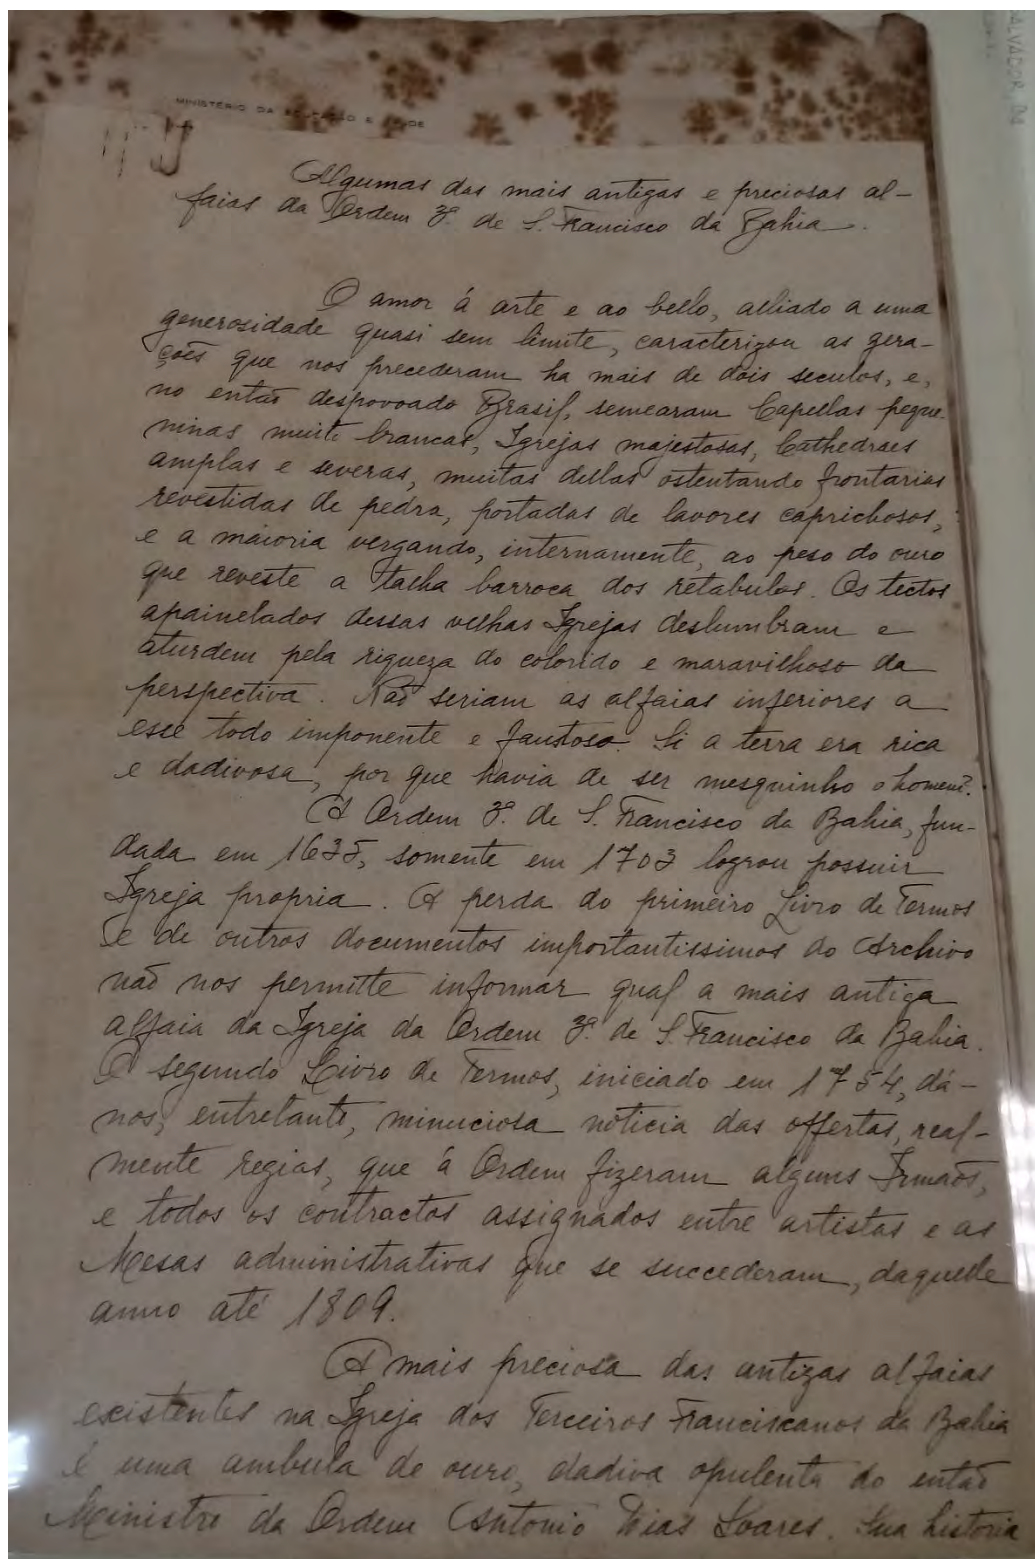 MINISTÉRIO DA EDUCAÇÃO E SAÚDE
Algumas das mais antigas e preciosas al-
faias da Ordem 3ª. de S. Francisco da Bahia.
O amor á arte e ao bello, alliado a uma
generosidade quasi sem limite, caracterizou as gera-
ções que nos precederam ha mais de dois seculos, e,
no então despovoado Brasil, semearam Capellas peque-
ninas muito brancas, Igrejas majestosas, Cathedraes
amplas e severas, muitas dellas ostentando frontarias
revestidas de pedra, portadas de lavores caprichosos,
e a maioria vergando, internamente, ao peso do ouro
que reveste a talha barroca dos retabulos. Os tectos
apainelados dessas velhas Igrejas deslumbram e
aturdem pela riqueza do colorido e maravilhoso da
perspectiva. Não seriam as alfaias inferiores a
esse todo imponente e faustoso. Si a terra era rica
e dadivosa, por que havia de ser mesquinho o homem?
A Ordem 3ª. de S. Francisco da Bahia, fun-
dada em 1635, somente em 1703 logrou possuir
Igreja propria. A perda do primeiro Livro de Termos
e de outros documentos importantissimos do Archivo
não nos permitte informar qual a mais antiga
alfaia da Igreja da Ordem 3ª. de S. Francisco da Bahia.
O segundo Livro de Termos, iniciado em 1754, dá-
nos, entretanto, minuciosa noticia das offertas, real-
mente regias, que á Ordem fizeram alguns Irmãos,
e todos os contractos assignados entre artistas e as
Mesas administrativas que se succederam, daquelle
anno até 1809.
A mais preciosa das antigas alfaias
existentes na Igreja dos Terceiros Franciscanos da Bahia
é uma ambula de ouro, dadiva opulenta do então
Ministro da Ordem Antonio Dias Soares. Sua historia
ALVADOR, BA